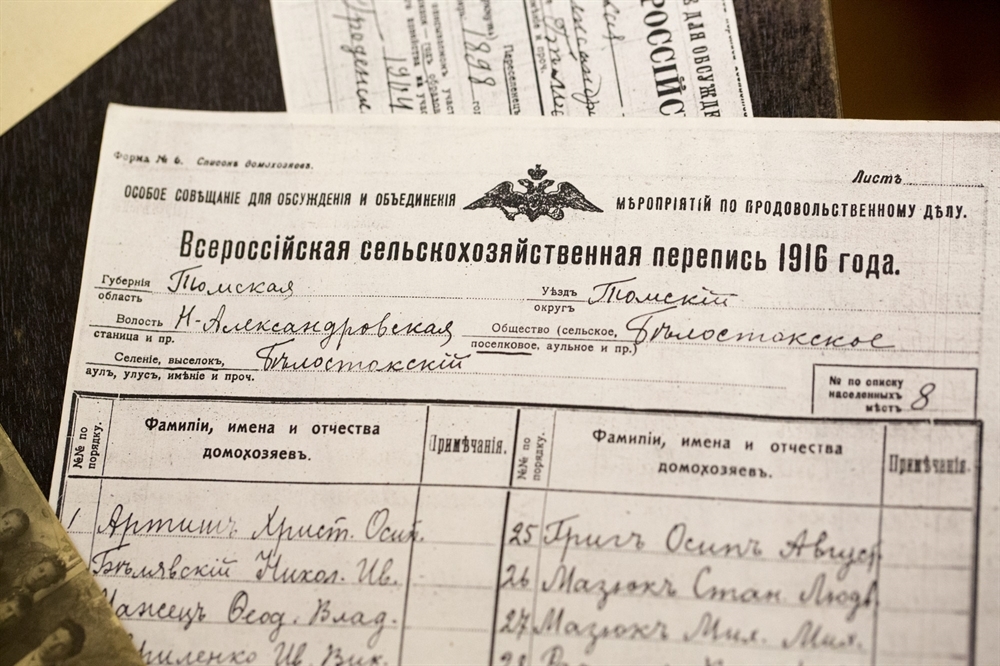 Форма № 6. Списокъ домохозяевъ.
Листъ
ОСОБОЕ СОВѢЩАНІЕ ДЛЯ ОБСУЖДЕНІЯ И ОБЪЕДИНЕНІЯ МѢРОПРІЯТІЙ ПО ПРОДОВОЛЬСТВЕННОМУ ДѢЛУ.
Всероссійская сельскохозяйственная перепись 1916 года.
Губернія область Томская Уѣздъ округъ Томскій
Волость станица и пр. Н-Александровская Общество (сельское, поселковое, аульное и пр.) Бѣлостокское
Селеніе, выселокъ, аулъ, улусъ, имѣніе и проч. Бѣлостокскій
№ по списку населенныхъ мѣстъ 8
№№ по порядку. Фамиліи, имена и отчества домохозяевъ. Примѣчанія. №№ по порядку. Фамиліи, имена и отчества домохозяевъ. Примѣчанія.
1 Артишъ Христ. Осип. 25 Григъ Осипъ Август
Бѣлявскій Никол. Ив. 26 Мазюкъ Стан. Людв
Ѳеод. Влад. 27 Мазюкъ Мих. Мих.
Ив. Вик. 28
1898
1944
Переселенец
РОССІЙС
ДЛЯ ОБСУЖДЕ